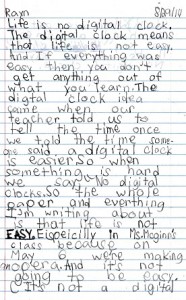 Life is no digital clock.
The digital clock means
that life is not easy.
And If everything was
easy then you don't
get anything out of
what you learn. The
digital clock idea
came when our
teacher told us to
tell the time once
we told the time some-
one said a digital clock
is easier. So when
something is hard
we say No digital
clocks. So the whole
paper and everthing
I'm writing about
is that life is not
EASY. Espeicilly in
class because on
May 6 we're making
an opera. And it's not
going to be easy.
(It's not a digital